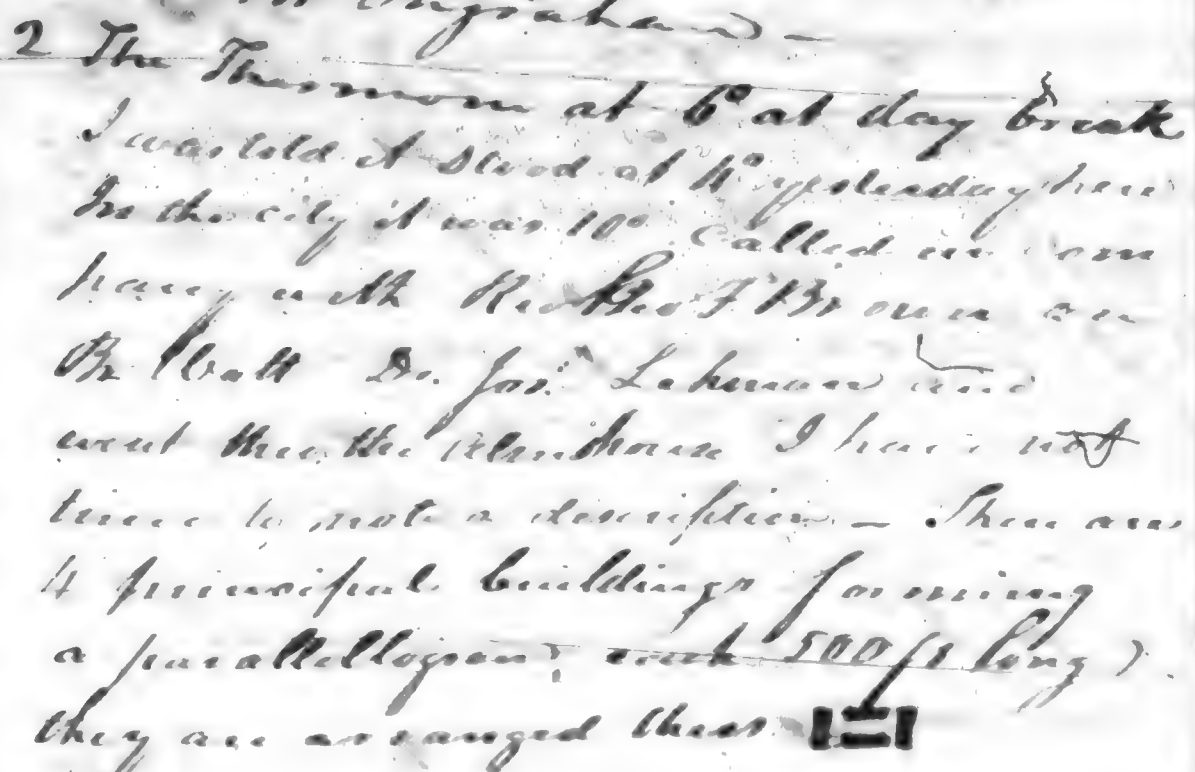 Ingraham —
2 The Thermom at 6° at day break
I was told it stood at 4° yesterday here
In the city it was 10°. Called in com
pany with Brown on
Dr. Jos. Lehman and
went thro. the Almshouse I have not
time to note a description — There are
4 principal buildings forming
a parallellogram, each 500 ft long)
they are arranged thus